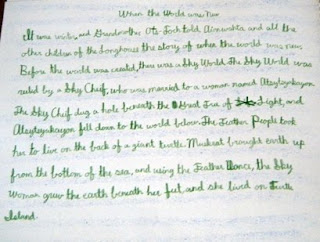 When the World was New
It was winter, and Grandmother Ots-Toch told Ainswanta and all the
other children of the longhouse the story of when the world was new.
Before the world was created, there was a Sky World. The Sky World was
ruled by a Sky Cheif, who was married to a woman named
The Sky Cheif dug a hole beneath the Great Tree of Light, and
fell down to the world below. The Feather People took
her to live on the back of a giant turtle. Muskrat brought earth up
from the bottom of the sea, and using the Feather Dance, the Sky
Woman grew the earth beneath her feet, and she lived on Turtle
Island.